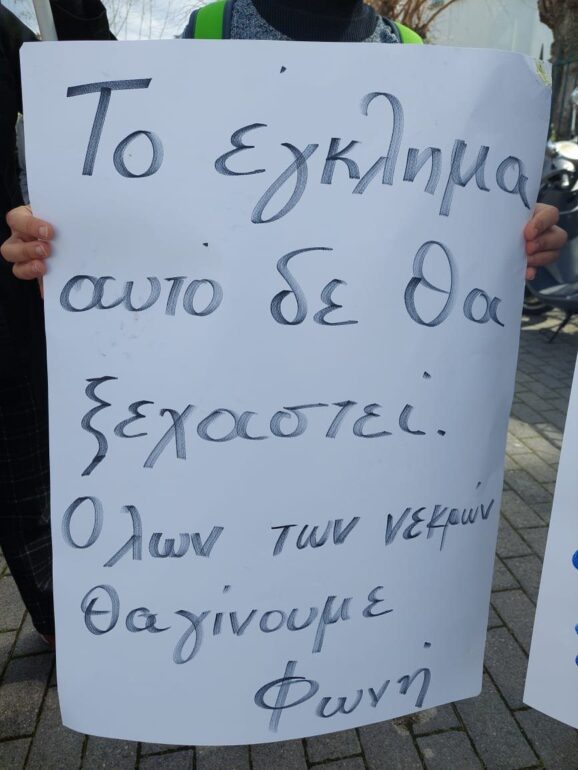 Το έγκλημα
αυτό δε θα
ξεχαστεί.
Όλων των νεκρών
θα γίνουμε
Φωνή